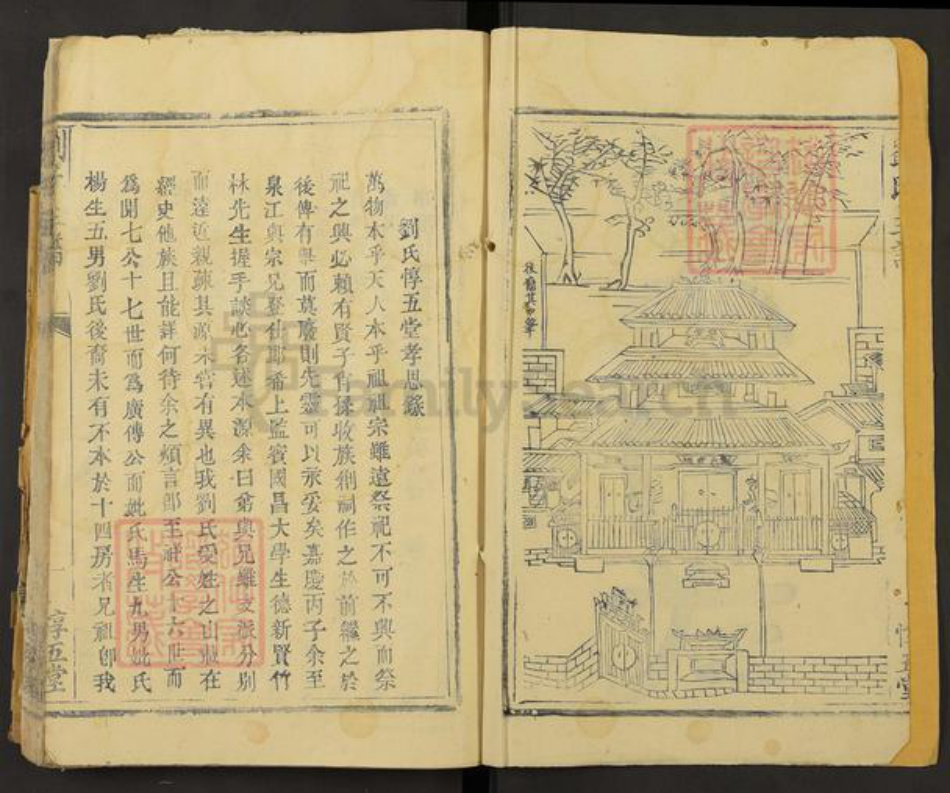 劉氏惇五堂孝思錄
萬物本乎天人本乎祖祖宗雖遠祭祀不可不興而祭
祀之興必賴有賢子肖孫收族剏祠作之於前繼之於
後俾有舉而莫廢則先靈可以永妥矣嘉慶丙子余至
泉江與宗兄登仕郎希上監賓國昌大學生德新賢竹
林先生握手談心各述本源余曰弟與兄雖支派分別
而遠近親疎其源未嘗有異也我劉氏受姓之由載在
經史他族且能詳何待余之煩言郎王祥公十六世而
爲開七公十七世而爲廣傳公而妣氏馬生九男妣氏
楊生五男劉氏後裔未有不本於十四房者兄祖卽我
惇五堂
FamilySearch